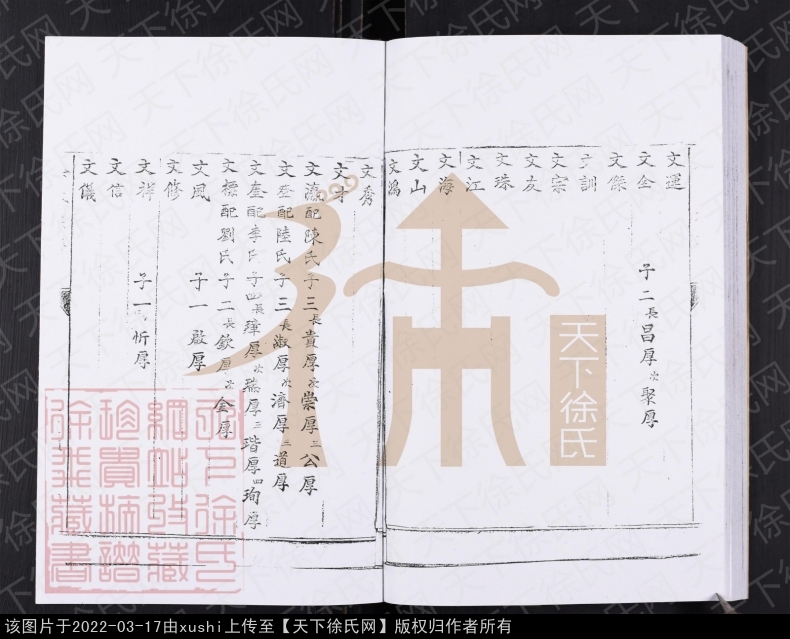 文運
文全 子二長昌厚次聚厚
文傑
文訓
文宗
文友
文珠
文江
文海
文山
文鴻
文秀
文才
文瀛配陳氏子三長貴厚次崇厚三公厚
文登配陸氏子三長淑厚次濟厚三道厚
文奎配李氏子四長璋厚次瑞厚三瑎厚四珣厚
文標配劉氏子二長欽厚次金厚
文風 子一啟厚
文修
文祥 子一 忻厚
文信
文儀
天下徐氏
天下徐氏網站收藏珍貴族譜徐氏藏書
天下徐氏网
该图片于2022-03-17由xushi上传至【天下徐氏网】版权归作者所有